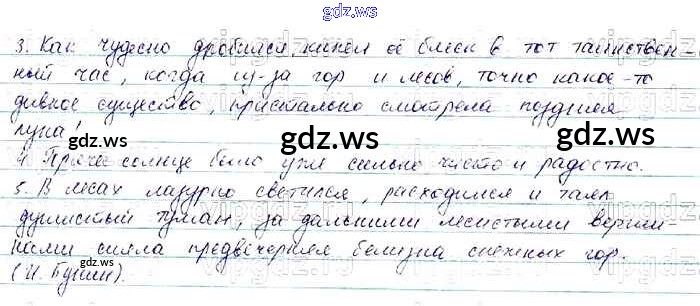 gdz.ws
3. Как чудесно дробился, кипел её блеск в тот таинствен-
ный час, когда из-за гор и лесов, точно какое-то
дивное существо, пристально смотрела поздняя
луна!
gdz.ws gdz.ws
4. Прячь солнце было уже сильно чисто и радостно.
5. В лесах лазурно светился, расходился и таял
душистый туман, за дальними лесистыми верши-
нами сияла предвечерняя белизна снежных гор.
(И. Бунин).
gdz.ws gdz.ws